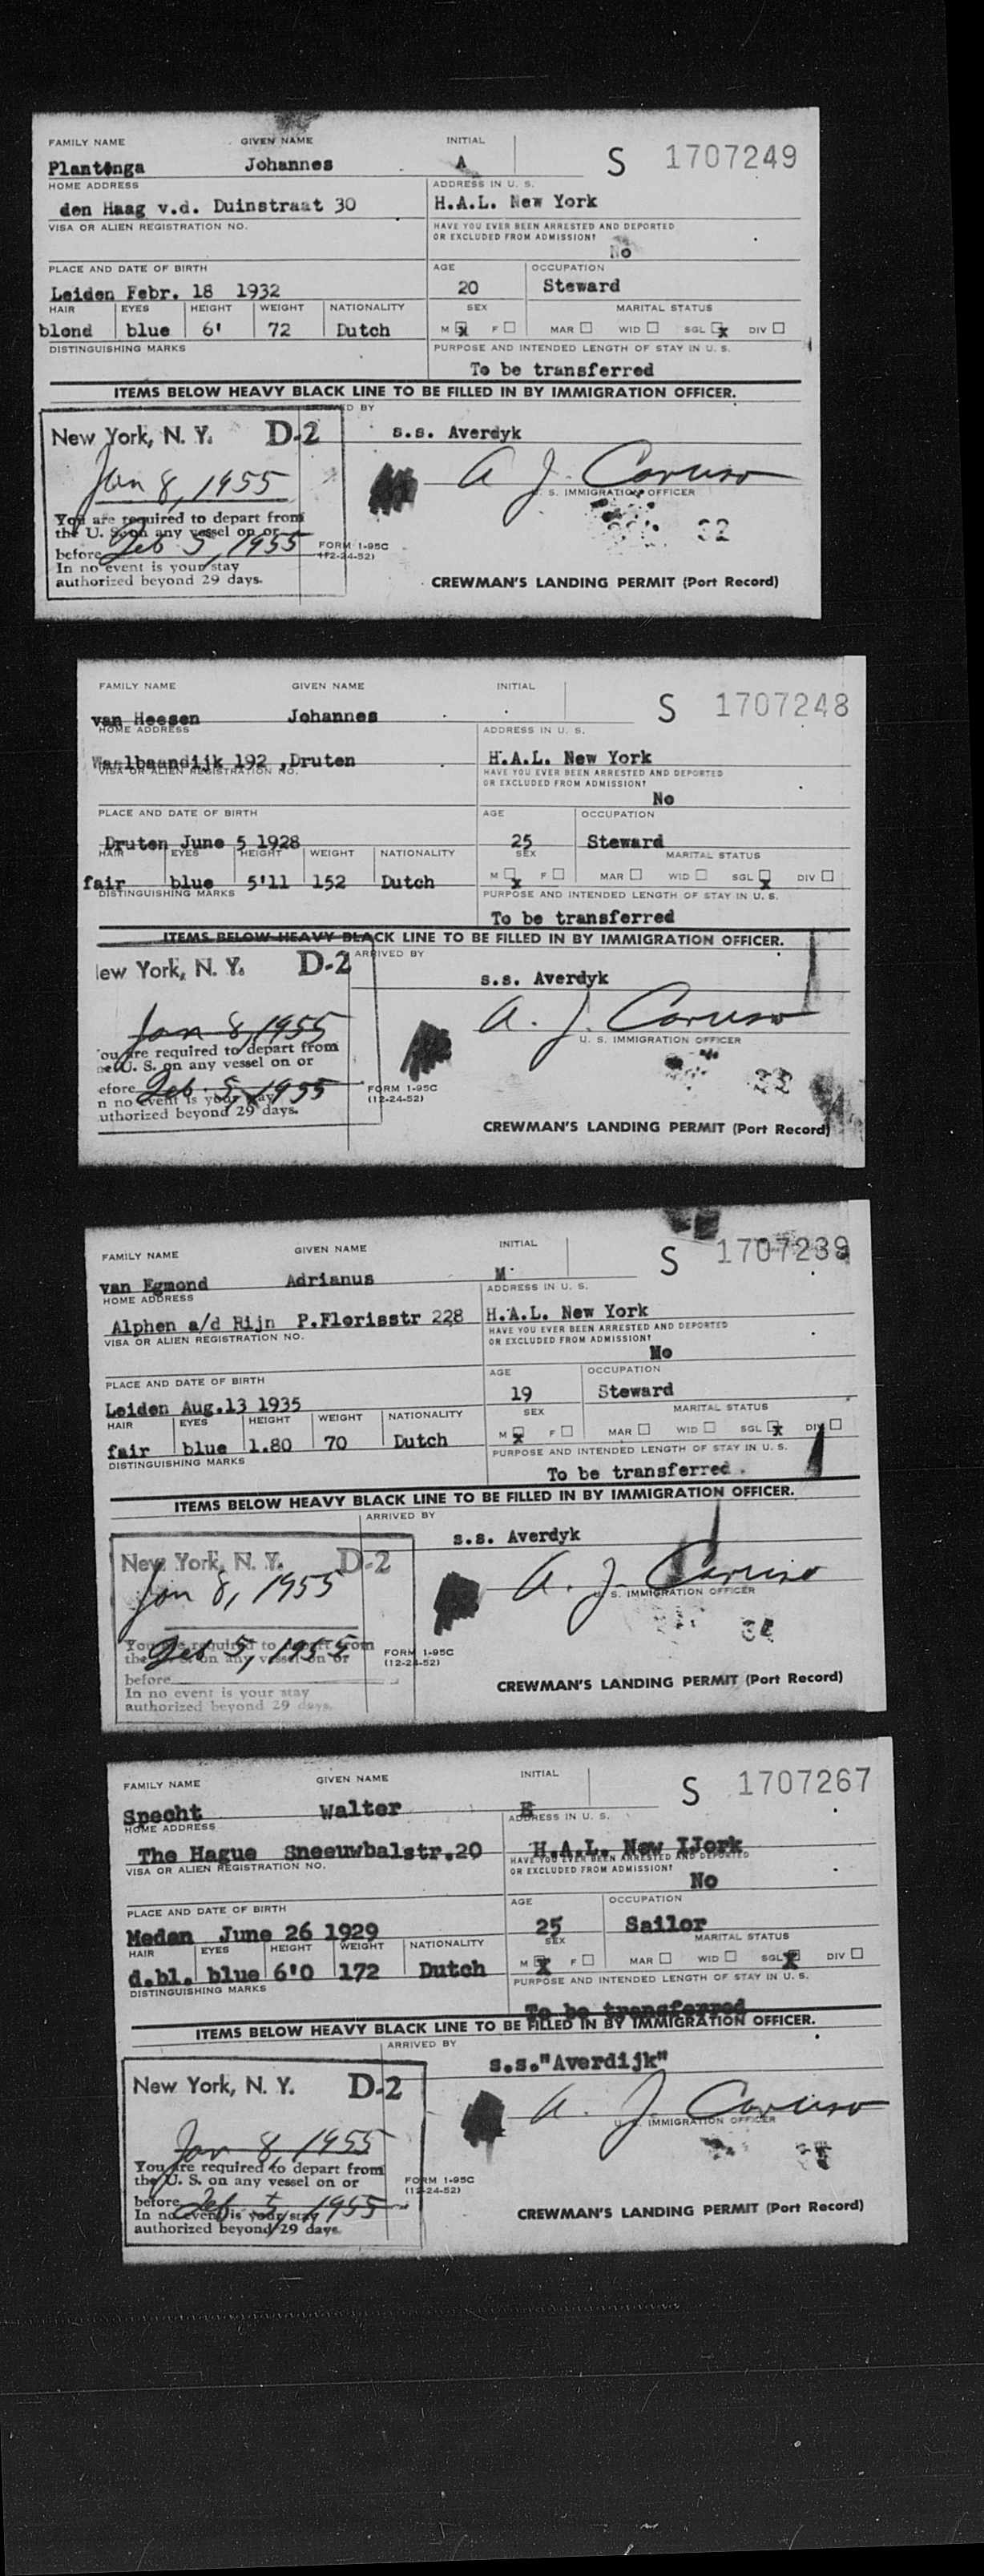 FAMILY NAME GIVEN NAME INITIAL
Plantenga Johannes A S 1707249
HOME ADDRESS ADDRESS IN U. S.
den Haag v.d. Duinstraat 30 H.A.L. New York
VISA OR ALIEN REGISTRATION NO. HAVE YOU EVER BEEN ARRESTED AND DEPORTED
OR EXCLUDED FROM ADMISSION?
No
PLACE AND DATE OF BIRTH AGE OCCUPATION
Leiden Febr. 18 1932 20 Steward
HAIR EYES HEIGHT WEIGHT NATIONALITY SEX MARITAL STATUS
blond blue 6' 72 Dutch M x F MAR WID SGL x DIV
DISTINGUISHING MARKS PURPOSE AND INTENDED LENGTH OF STAY IN U. S.
To be transferred
ITEMS BELOW HEAVY BLACK LINE TO BE FILLED IN BY IMMIGRATION OFFICER.
ARRIVED BY
New York, N. Y. D-2 s.s. Averdyk
Jan 8, 1955 A J. Caruso
U. S. IMMIGRATION OFFICER
You are required to depart from
the U. S. on any vessel on or 32
before Feb 5, 1955 FORM I-95C
In no event is your stay (12-24-52)
authorized beyond 29 days. CREWMAN'S LANDING PERMIT (Port Record)
FAMILY NAME GIVEN NAME INITIAL
van Heesen Johannes S 1707248
HOME ADDRESS ADDRESS IN U. S.
Waalbaandijk 192 ,Druten H.A.L. New York
VISA OR ALIEN REGISTRATION NO. HAVE YOU EVER BEEN ARRESTED AND DEPORTED
OR EXCLUDED FROM ADMISSION?
No
PLACE AND DATE OF BIRTH AGE OCCUPATION
Druten June 5 1928 25 Steward
HAIR EYES HEIGHT WEIGHT NATIONALITY SEX MARITAL STATUS
fair blue 5'11 152 Dutch M x F MAR WID SGL x DIV
DISTINGUISHING MARKS PURPOSE AND INTENDED LENGTH OF STAY IN U. S.
To be transferred
ITEMS BELOW HEAVY BLACK LINE TO BE FILLED IN BY IMMIGRATION OFFICER.
ARRIVED BY
lew York, N. Y. D-2 s.s. Averdyk
Jan 8, 1955 A. J. Caruso
U. S. IMMIGRATION OFFICER
ou are required to depart from
he U. S. on any vessel on or
efore Feb. 5, 1955 FORM I-95C
n no event is your stay (12-24-52)
uthorized beyond 29 days. CREWMAN'S LANDING PERMIT (Port Record)
FAMILY NAME GIVEN NAME INITIAL
van Egmond Adrianus M S 1707239
HOME ADDRESS ADDRESS IN U. S.
Alphen a/d Rijn P.Florisstr 228 H.A.L. New York
VISA OR ALIEN REGISTRATION NO. HAVE YOU EVER BEEN ARRESTED AND DEPORTED
OR EXCLUDED FROM ADMISSION?
No
PLACE AND DATE OF BIRTH AGE OCCUPATION
Leiden Aug.13 1935 19 Steward
HAIR EYES HEIGHT WEIGHT NATIONALITY SEX MARITAL STATUS
fair blue 1.80 70 Dutch M x F MAR WID SGL x DIV
DISTINGUISHING MARKS PURPOSE AND INTENDED LENGTH OF STAY IN U. S.
To be transferred.
ITEMS BELOW HEAVY BLACK LINE TO BE FILLED IN BY IMMIGRATION OFFICER.
ARRIVED BY
New York, N. Y. D-2 s.s. Averdyk
Jan 8, 1955 A. J. Caruso
U. S. IMMIGRATION OFFICER
You are required to depart from
the U. S. on any vessel on or
Feb 5, 1955 FORM I-95C
before (12-24-52)
In no event is your stay
authorized beyond 29 days. CREWMAN'S LANDING PERMIT (Port Record)
FAMILY NAME GIVEN NAME INITIAL
Specht Walter E S 1707267
HOME ADDRESS ADDRESS IN U. S.
The Hague Sneeuwbalstr.20 H.A.L. New IJork
VISA OR ALIEN REGISTRATION NO. HAVE YOU EVER BEEN ARRESTED AND DEPORTED
OR EXCLUDED FROM ADMISSION?
No
PLACE AND DATE OF BIRTH AGE OCCUPATION
Medan June 26 1929 25 Sailor
HAIR EYES HEIGHT WEIGHT NATIONALITY SEX MARITAL STATUS
d.bl. blue 6'0 172 Dutch M x F MAR WID SGL x DIV
DISTINGUISHING MARKS PURPOSE AND INTENDED LENGTH OF STAY IN U. S.
To be transferred
ITEMS BELOW HEAVY BLACK LINE TO BE FILLED IN BY IMMIGRATION OFFICER.
ARRIVED BY
New York, N. Y. D-2 s.s."Averdijk"
Jan 8, 1955 A. J. Caruso
U. S. IMMIGRATION OFFICER
You are required to depart from
the U. S. on any vessel on or
before Feb. 5, 1955 FORM I-95C
In no event is your stay (12-24-52)
authorized beyond 29 days. CREWMAN'S LANDING PERMIT (Port Record)